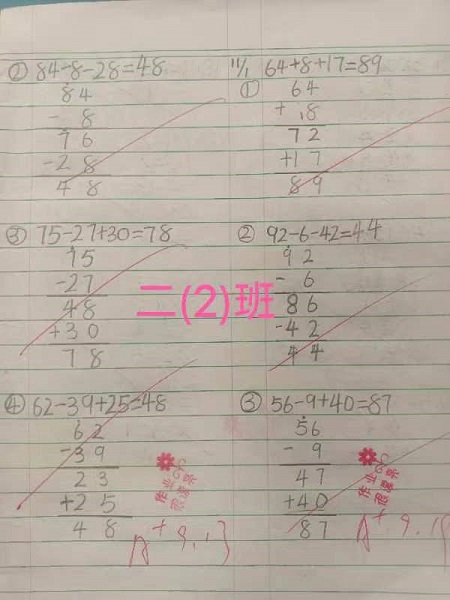 ② 84-8-28=48
84
- 8
76
-28
48
③ 75-27+30=78
75
-27
48
+30
78
④ 62-39+25=48
62
-39
23
+25
48
A+ 9.13
11/1 64+8+17=89
①
64
+ 8
72
+17
89
② 92-6-42=44
92
- 6
86
-42
44
③ 56-9+40=87
56
- 9
47
+40
87
A+ 9.19
二(2)班